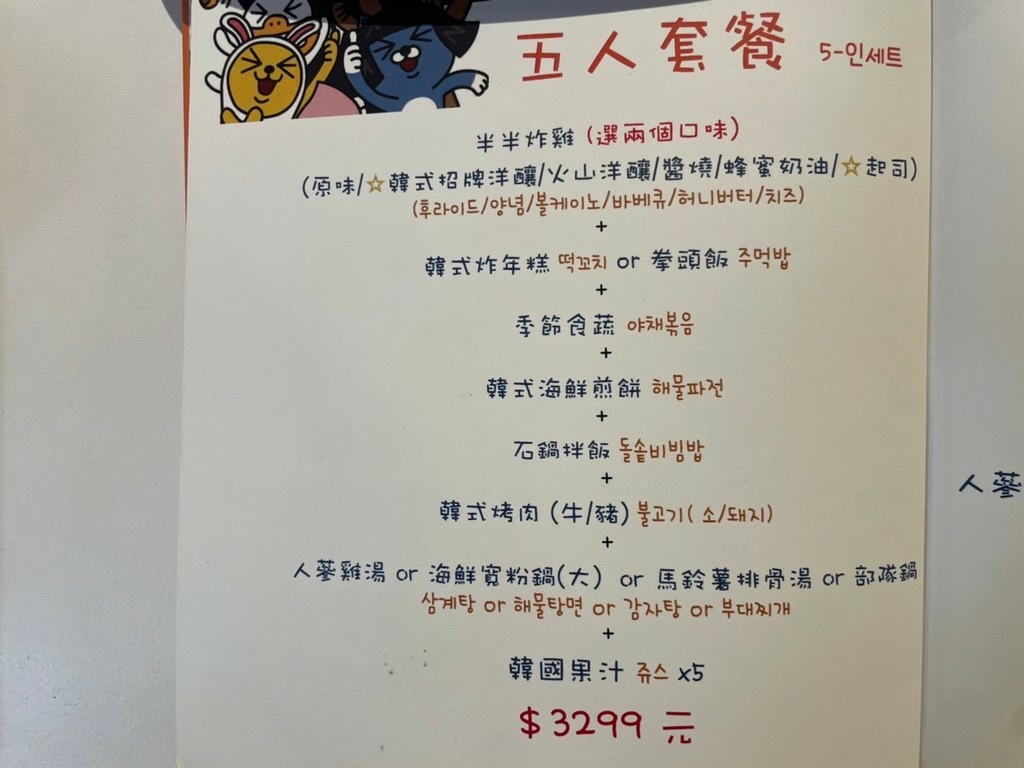 五人套餐 5-인세트
半半炸雞 (選兩個口味)
(原味/☆韓式招牌洋釀/火山洋釀/醬燒/蜂蜜奶油/☆起司)
(후라이드/양념/볼케이노/바베큐/허니버터/치즈)
+
韓式炸年糕 떡꼬치 or 拳頭飯 주먹밥
+
季節食蔬 야채볶음
+
韓式海鮮煎餅 해물파전
+
石鍋拌飯 돌솥비빔밥
+
韓式烤肉 (牛/豬) 불고기( 소/돼지)
+
人蔘雞湯 or 海鮮寬粉鍋(大) or 馬鈴薯排骨湯 or 部隊鍋
삼계탕 or 해물탕면 or 감자탕 or 부대찌개
+
韓國果汁 쥬스 x5
$3299 元
人蔘